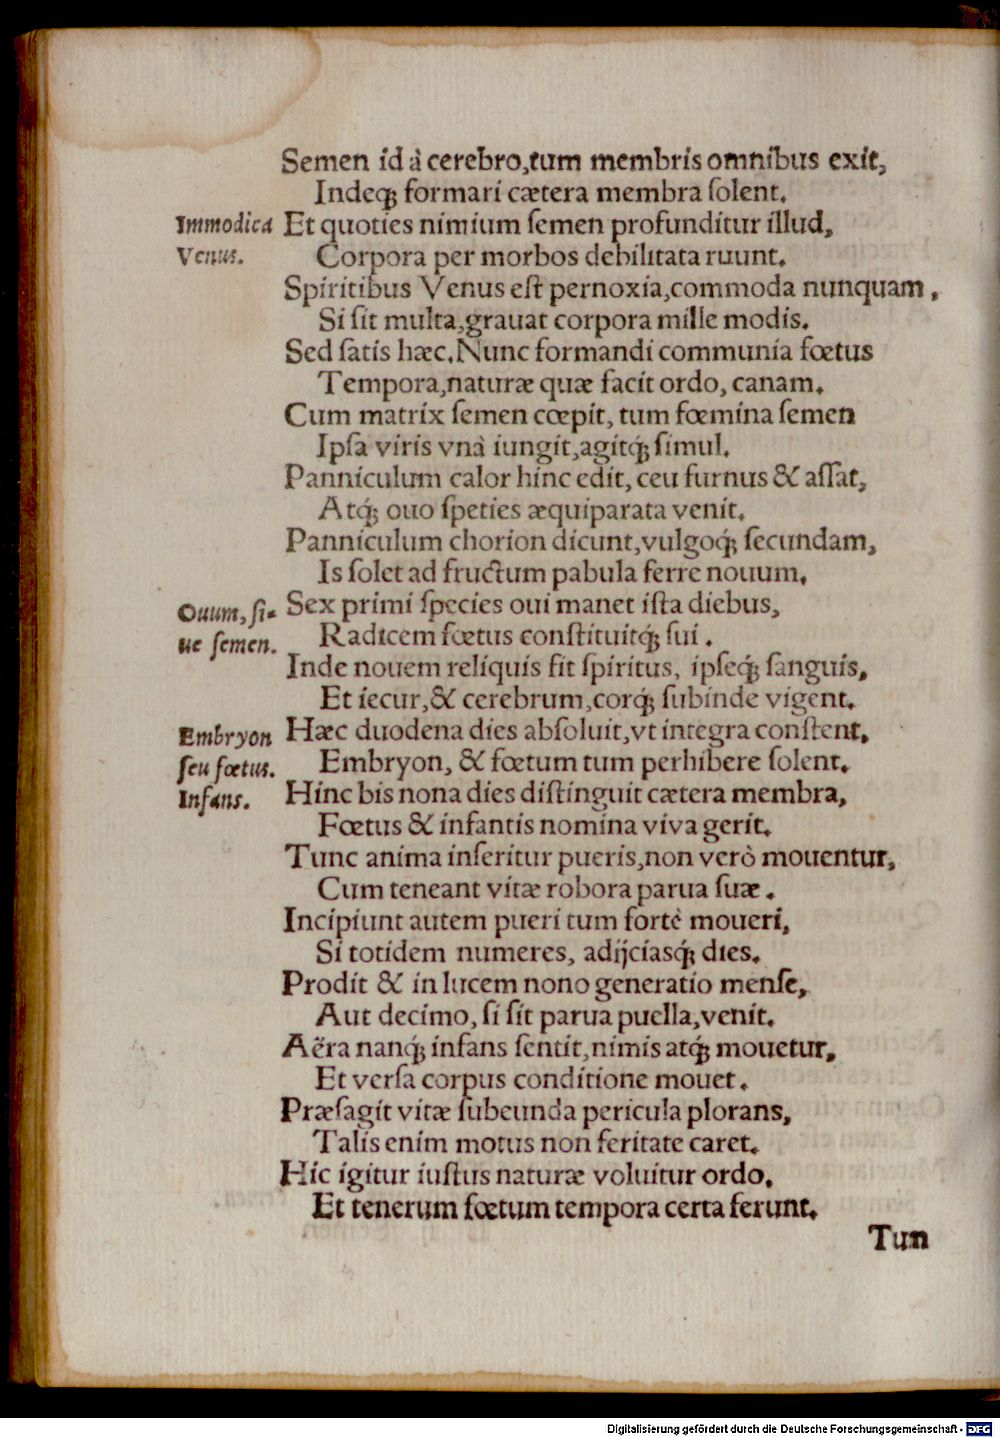 Semen id à cerebro,tum membris omnibus exit,
Indeq́; formari cætera membra ſolent.
Immodica Venus.
Et quoties nimium ſemen profunditur illud,
Corpora per morbos debilitata ruunt.
Spiritibus Venus eſt pernoxia,commoda nunquam,
Si ſit multa,grauat corpora mille modis.
Sed ſatis hæc.Nunc formandi communia fœtus
Tempora,naturæ quæ facit ordo, canam.
Cum matrix ſemen cœpit, tum fœmina ſemen
Ipſa viris vnà iungit,agitq́; ſimul.
Panniculum calor hinc edit, ceu furnus & aſſat,
Atq́; ouo ſpeties æquiparata venit.
Panniculum chorion dicunt,vulgoq́; ſecundam,
Is ſolet ad fructum pabula ferre nouum.
Ouum, ſi-
ue ſemen.
Sex primi ſpecies oui manet iſta diebus,
Radicem fœtus conſtituitq́; ſui.
Inde nouem reliquis fit ſpiritus, ipſeq́; ſanguis,
Et iecur,& cerebrum,corq́; ſubinde vigent.
Embryon
ſeu fœtus.
Hæc duodena dies abſoluit,vt integra conſtent,
Embryon, & fœtum tum perhibere ſolent.
Infans.
Hinc bis nona dies diſtinguit cætera membra,
Fœtus & infantis nomina viva gerit.
Tunc anima inſeritur pueris,non verò mouentur,
Cum teneant vitæ robora parua ſuæ.
Incipiunt autem pueri tum fortè moueri,
Si totidem numeres, adijciasq́; dies.
Prodit & in lucem nono generatio menſe,
Aut decimo, ſi ſit parua puella,venit.
Aëra nanq́; infans ſentit,nimis atq́; mouetur,
Et verſa corpus conditione mouet.
Præſagit vitæ ſubeunda pericula plorans,
Talis enim motus non feritate caret.
Hic igitur iuſtus naturæ voluitur ordo.
Et tenerum fœtum tempora certa ferunt.
Tun
Digitalisierung gefördert durch die Deutsche Forschungsgemeinschaft - DFG